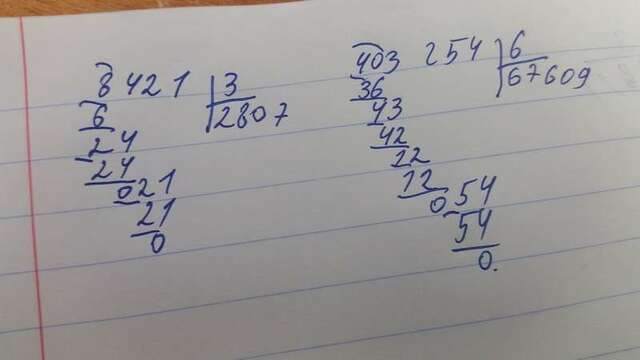 8 421 3
6 2807
24
24
021
21
0
403 254 6
36 67609
43
42
12
12
0 54
54
0.